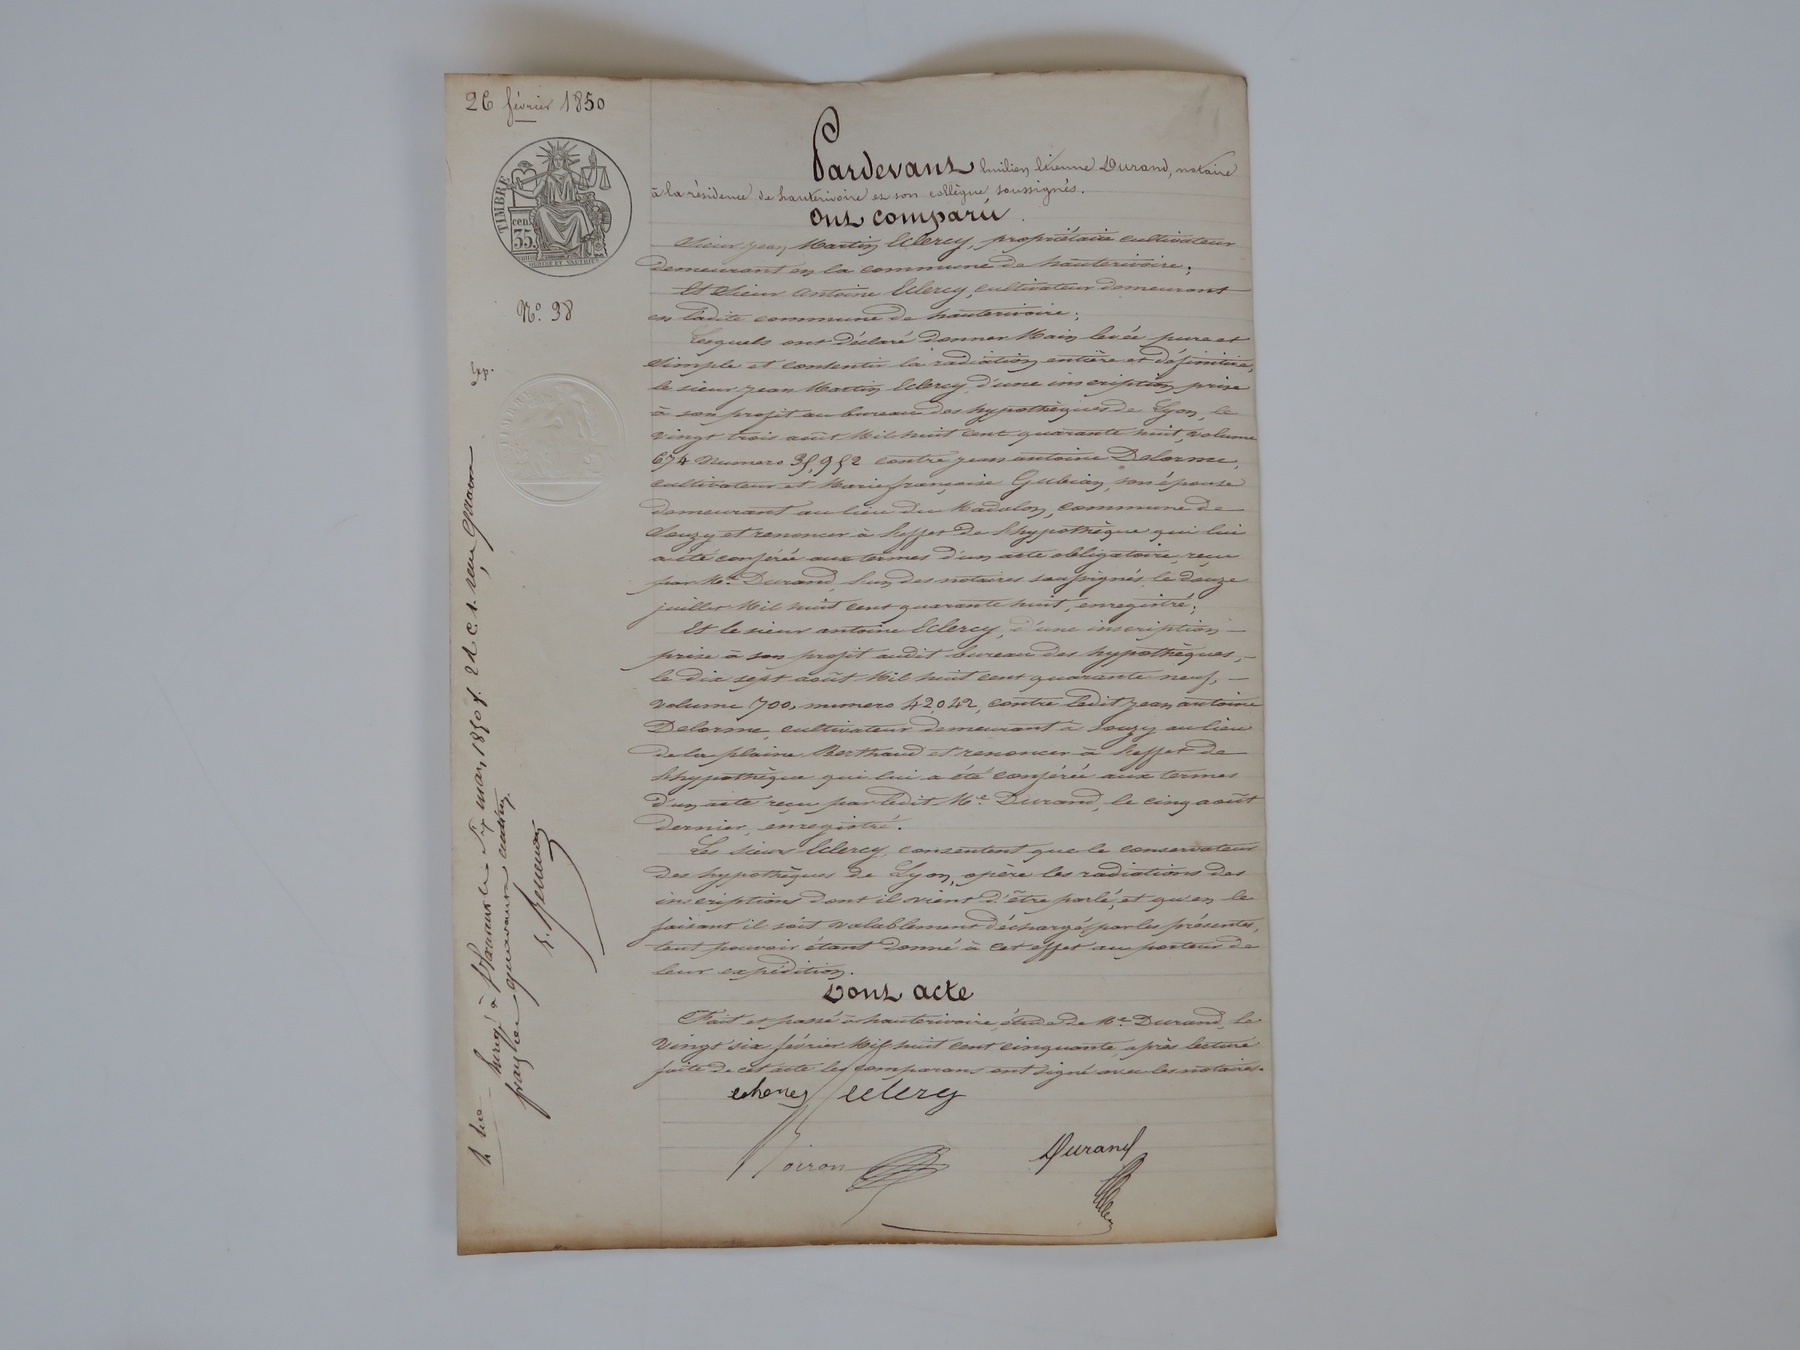 26 février 1850
TIMBRE
cent.
35.
No. 38
Pardevant Emilien Etienne Durand, notaire
à la résidence de hauterivoire et son collègue soussignés.
Ont comparu
Sieur jean Martin Eclercy, propriétaire cultivateur
demeurant en la commune de hauterivoire;
Et Sieur Antoine Eclercy, cultivateur demeurant
en ladite commune de hauterivoire;
Lesquels ont déclaré donner Main levée pure et
Simple et consentir la radiation entière et définitive,
le sieur jean Martin Eclercy, d'une inscription prise
à son profit au bureau des hypothèques de Lyon, le
vingt trois août Mil huit cent quarante huit, volume
674 Numero 35,952 contre jean antoine Delorme,
cultivateur et Marie françoise Gubian, son épouse
demeurant au lieu du Madolon, commune de
Souzy et renoncer à l'effet de l'hypothèque qui lui
a été conférée aux termes d'un acte obligatoire, reçu
par Me. Durand, l'un des notaires soussignés, le douze
juillet Mil huit cent quarante huit, enregistré;
Et le sieur antoine Eclercy, d'une inscription
prise à son profit audit bureau des hypothèques,
le dix sept août Mil huit cent quarante neuf,
volume 700, numero 42,042, contre ledit jean antoine
Delorme, cultivateur demeurant à Souzy au lieu
de la plaine Berthaud et renoncer à l'effet de
l'hypothèque qui lui a été conférée aux termes
d'un acte reçu par ledit Me. Durand, le cinq août
dernier, enregistré.
Les sieurs Eclercy, consentent que le conservateur
des hypothèques de Lyon, opère les radiations des
inscriptions dont il vient d'être parlé, et qu'en le
faisant il soit valablement déchargé par les présentes,
tout pouvoir étant donné à cet effet au porteur de
leur expédition.
Dont acte
Fait et passé à hauterivoire, étude de Me. Durand, le
vingt six février Mil huit cent cinquante, après lecture
faite de cet acte les comparans ont signé avec les notaires.
eclercy
Durand